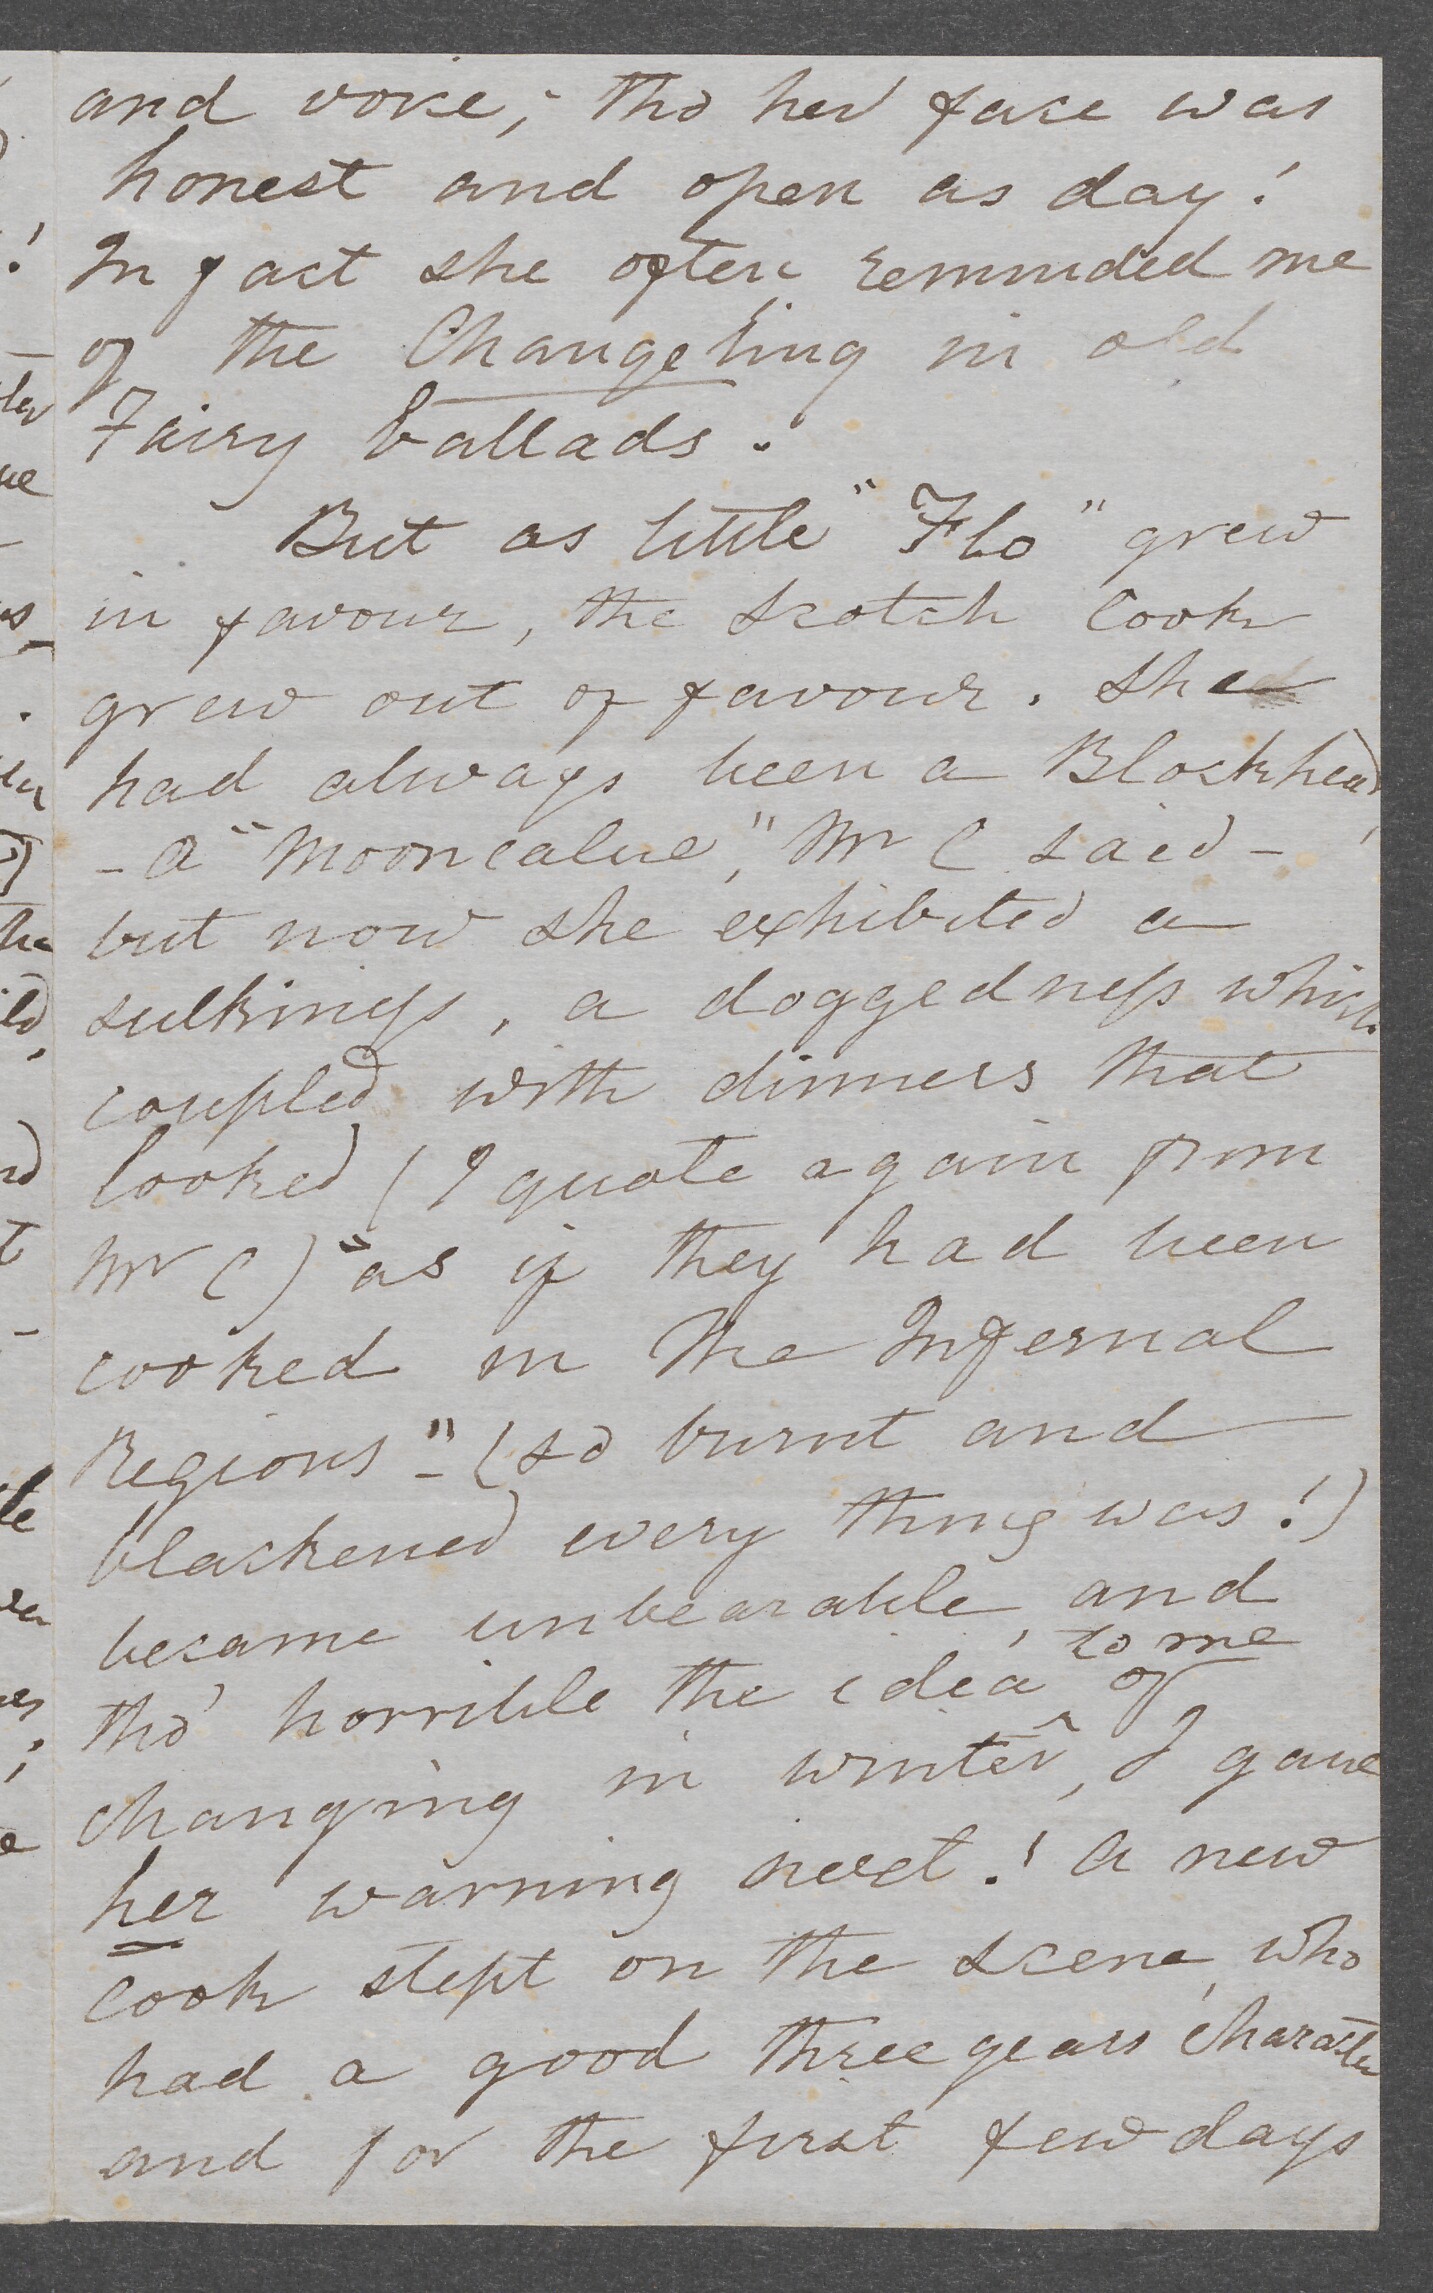 and voice; tho her face was
honest and open as day!
In fact she often reminded me
of the Changeling in old
Fairy ballads.
But as little "Flo" grew
in favour, the Scotch Cook
grew out of favour. She
had always been a Blockhead
- a "Mooncalve," Mr C said - !
but now she exhibited a
sulkiness, a doggedness which
coupled with dinners that
looked (I quote again from
Mr C) "as if they had been
cooked in The Infernal
Regions" - (so burnt and
blackened every thing was!)
became unbearable, and
tho' horrible the idea to me of
changing in winter, I gave
her warning next! A new
Cook stept on the scene, who
had a good three years character
and for the first few days